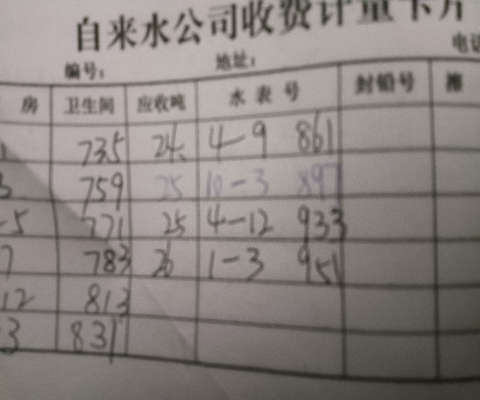 自来水公司收费计量卡片
编号： 地址： 电
房 卫生间 应收吨 水表号 封铅号
735 24 4-9 861
3 759 25 10-3 897
-5 771 25 4-12 933
7 783 26 1-3 951
12 813
3 831